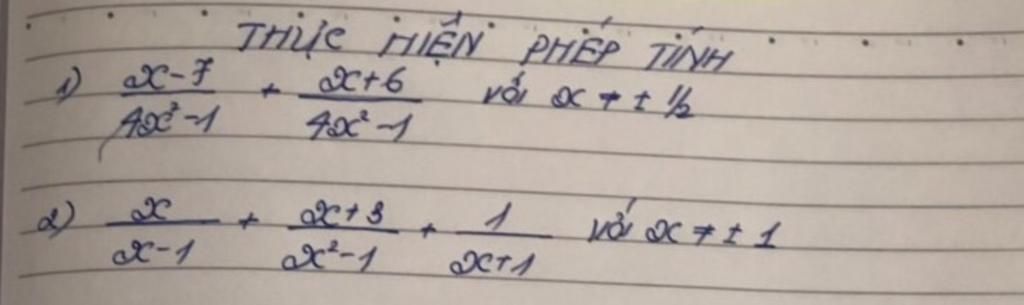 THỰC HIỆN PHÉP TÍNH
1) (x-7)/(4x²-1) + (x+6)/(4x²-1) với x ≠ ± 1/2
2) x/(x-1) + (x+3)/(x²-1) + 1/(x+1) với x ≠ ± 1